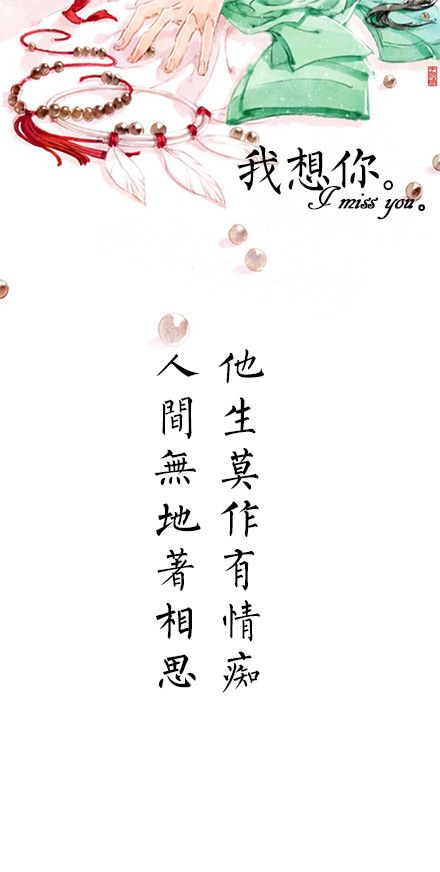 我想你。
I miss you。
他生莫作有情痴
人間無地著相思